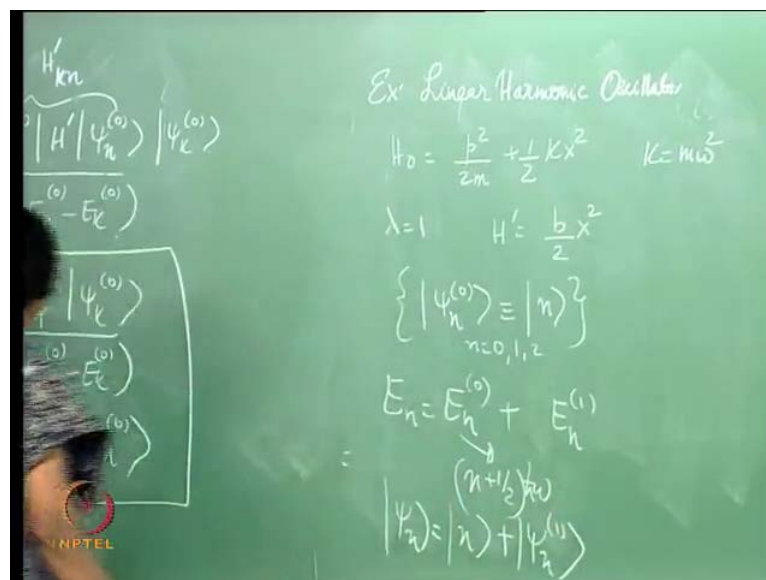 H'ₖₙ
| H' | ψₙ⁽⁰⁾⟩ | ψₖ⁽⁰⁾⟩
⁽⁰⁾ - Eₖ⁽⁰⁾)
| ψₖ⁽⁰⁾⟩
⁽⁰⁾ - Eₖ⁽⁰⁾)
⁽⁰⁾⟩
Ex: Linear Harmonic Oscillator
H₀ = p²/2m + 1/2 Kx² K = mω²
λ=1 H' = b/2 x²
{ |ψₙ⁽⁰⁾⟩ ≡ |n⟩ }
n=0,1,2
Eₙ = Eₙ⁽⁰⁾ + Eₙ⁽¹⁾
=
(n+1/2)ħω
|ψₙ⟩ = |n⟩ + |ψₙ⁽¹⁾⟩
NPTEL